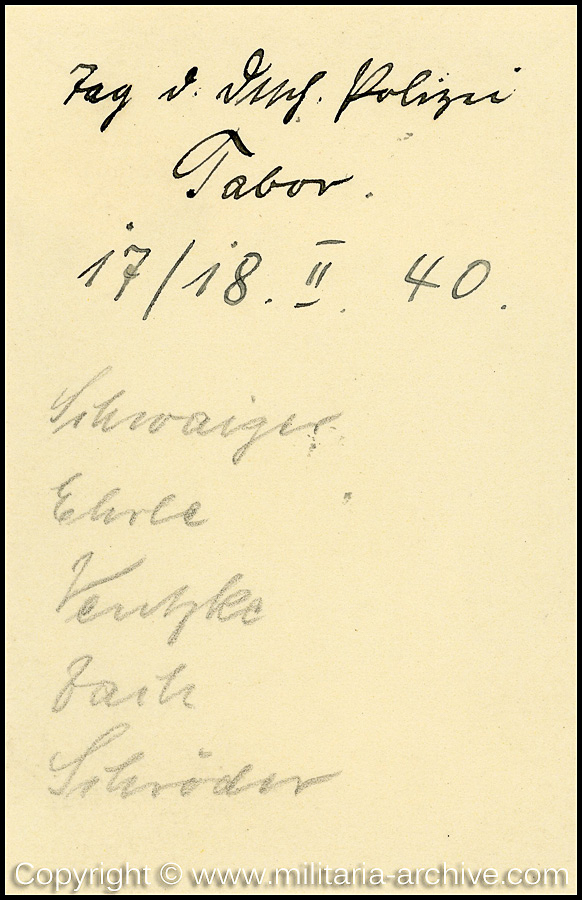 Tag d. Dtsch. Polizei
Tabor.
17/18. II. 40.
Schwaiger
Ehrle
Ventzke
Zach
Schröder
Copyright © www.militaria-archive.com